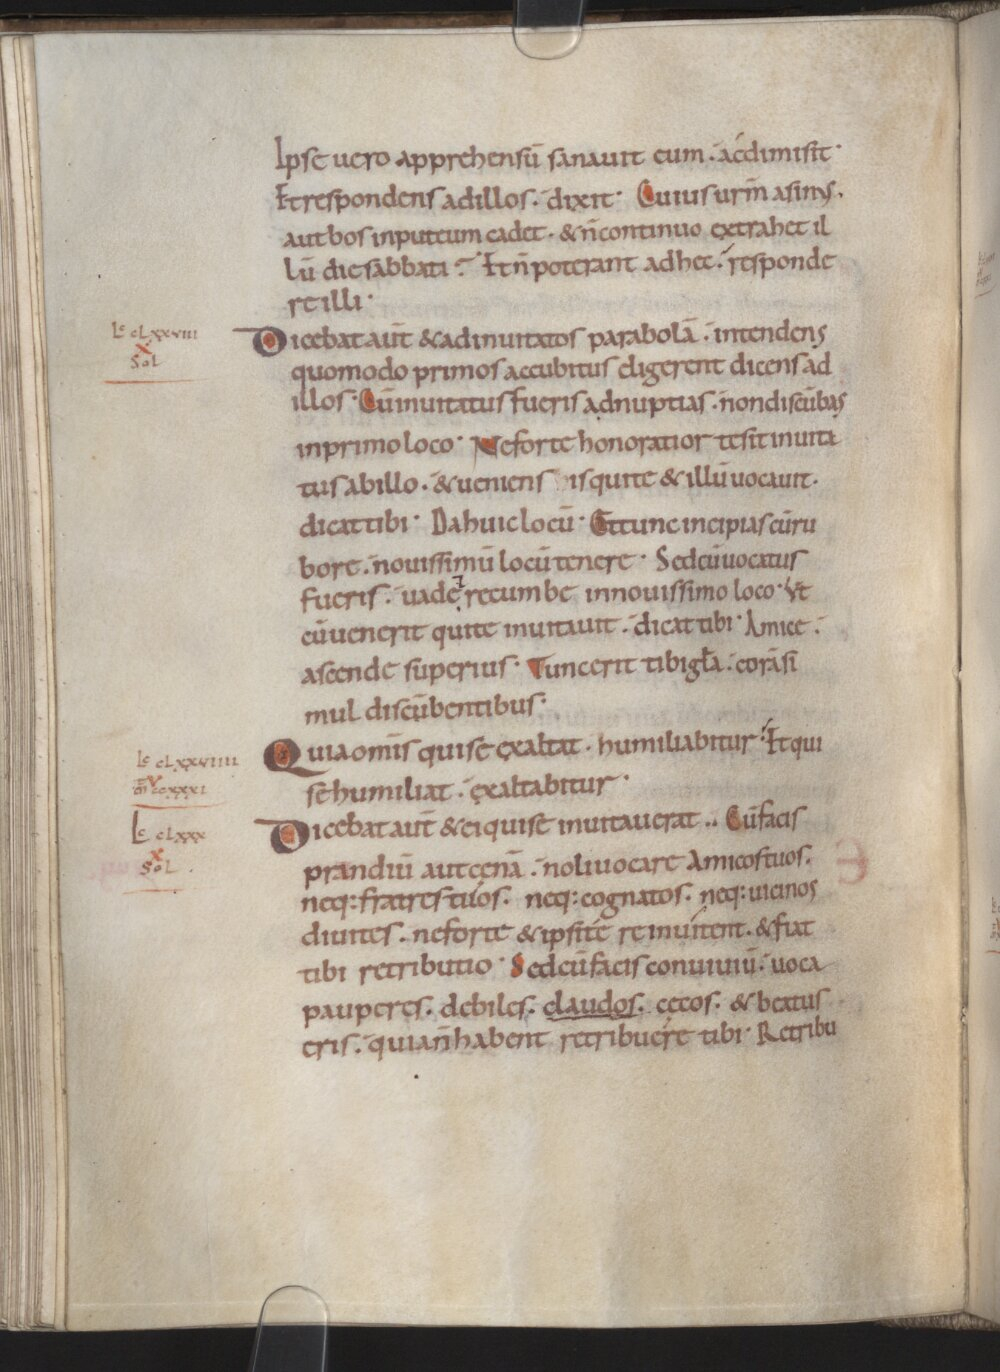 Ipse uero apprehensū sanauit eum. acdimisit.
Et respondens adillos. dixit. Cuius urm̄ asinus.
aut bos inputeum cadet. & n̄ continuo extrahet il
lū die sabbati? Et n̄ poterant adhec. responde
re illi.
Lc cLxxviii
x
SoL
Dicebat aut̄ & adinuitatos parabolā. intendens
quomodo primos accubitus eligerent dicens ad
illos. Cū inuitatus fueris adnuptias. non discūbas
inprimo loco. Ne forte honoratior te sit inuita
tus abillo. & ueniens is qui te & illū uocauit.
dicat tibi. Da huic locū. Et tunc incipias cū ru
bore. nouissimū locū tenere. Sed cū uocatus
fueris. uade ⁊ recumbe innouissimo loco. Vt
cū uenerit qui te inuitauit. dicat tibi. Amice.
ascende superius. Tunc erit tibi gła. corā si
mul discūbentibus.
Lc cLxxviiii
v
m̄ ccxxxi
Quia omīs qui se exaltat. humiliabitur. Et qui
se humiliat. exaltabitur.
Lc cLxxx
x
SoL
Dicebat aut̄ & ei qui se inuitauerat.. Cū facis
prandiū aut cenā. noli uocare Amicos tuos.
neq: fratres tuos. neq: cognatos. neq: uicinos
diuites. neforte & ipsi te reinuitent. & fiat
tibi retributio. Sed cū facis conuiuiū. uoca
pauperes. debiles. claudos. cecos. & beatus
eris. quia n̄ habent retribuere tibi. Retribu